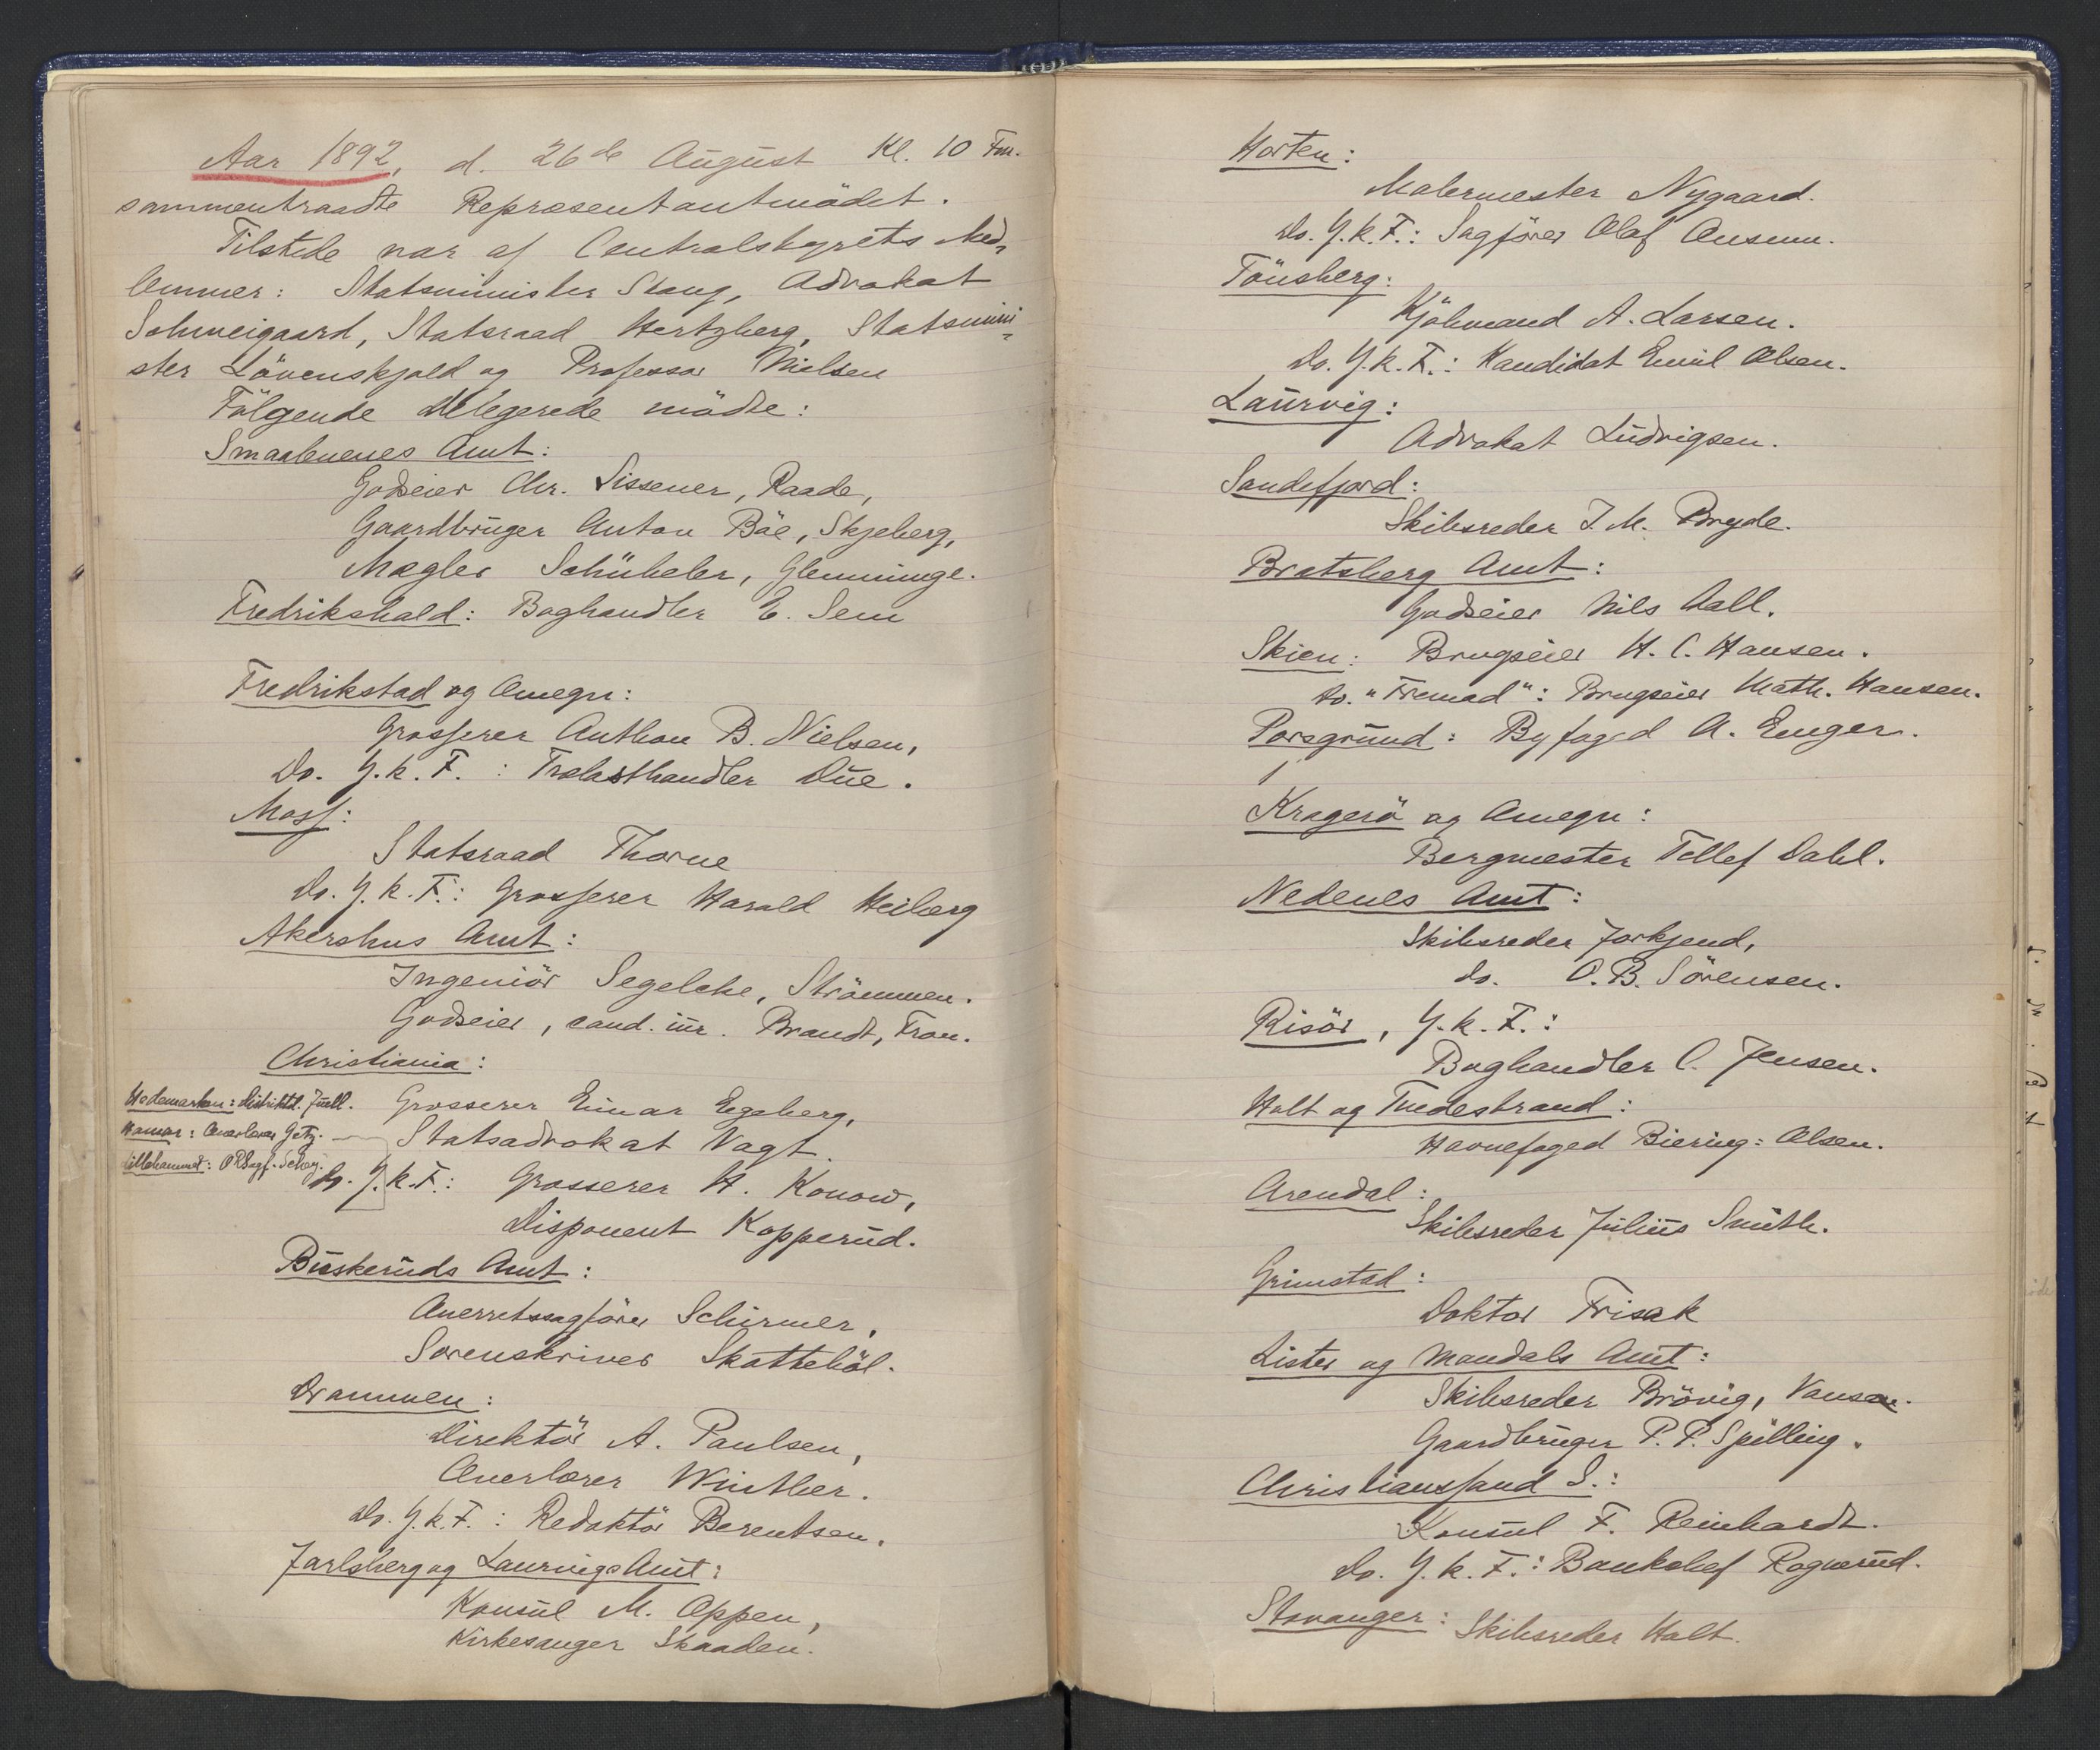 Aar 1892, d. 26de August Kl. 10 Fm.
sammentraadte Repræsentantmödet.
Tilstede var af Centralstyrets Med-
lemmer: Statsminister Stang, Advokat
Schweigaard, Statsraad Hertzberg, Statsmini-
ster Lövenskjold og Professor Nielsen
Fölgende Delegerede mödte:
Smaalenenes Amt:
Godseier Chr. Sissener, Raade,
Gaardbruger Anton Böe, Skjeberg,
Mægler Schübeler, Glemminge.
Fredrikshald: Boghandler E. Sem
Fredrikstad og Omegn:
Grosserer Anthon B. Nielsen,
Do. Y.k.F.: Trælasthandler Due.
Moss:
Statsraad Thorne
Do. Y.k.F.: Grosserer Harald Heiberg
Akershus Amt:
Ingeniör Segelcke, Strömmen.
Godseier, cand. jur. Brandt, Fron.
Christiania:
Grosserer Einar Egeberg,
Statsadvokat Vogt.
Do. Y.k.F.: Grosserer H. Konow,
Disponent Kopperud.
Hedemarken: Distriktsl. Juell.
Hamar: Overlærer Getz.
Lillehammer: ORSagf.
Buskeruds Amt:
Overretssagförer Schirmer,
Sorenskriver Skatteböl.
Drammen:
Direktör A. Paulsen,
Overlærer Winther.
Do. Y.k.F.: Redaktör Berentsen.
Jarlsberg og Laurvigs Amt:
Konsul M. Oppen,
Kirkesanger Skaaden.
Horten:
Malermester Nygaard.
Do. Y.k.F.: Sagförer Olaf Ousum.
Tönsberg:
Kjöbmand A. Larsen.
Do. Y.k.F.: Kandidat Emil Olsen.
Laurvig:
Advokat Ludvigsen.
Sandefjord:
Skibsreder J. M. Bryde.
Bratsberg Amt:
Godseier Nils Aall.
Skien: Brugseier H. C. Hansen.
do. "Fremad": Brugseier Math. Hansen.
Porsgrund: Byfoged A. Enger.
Kragerö og Omegn:
Bergmester Tellef Dahl.
Nedenes Amt:
Skibsreder Jorkjend,
do. O.B. Sörensen.
Risör, Y.k.F.:
Boghandler C. Jensen.
Holt og Tvedestrand:
Havnefoged Biering-Olsen.
Arendal:
Skibsreder Julius Smith.
Grimstad:
Doktor Frisak
Lister og Mandals Amt:
Skibsreder Brövig, Vanse.
Gaardbruger P. P. Spilling.
Christianssand S.:
Konsul F. Reinhardt.
Do. Y.k.F.: Bankchef Rognerud.
Stavanger: Skibsreder Holt.